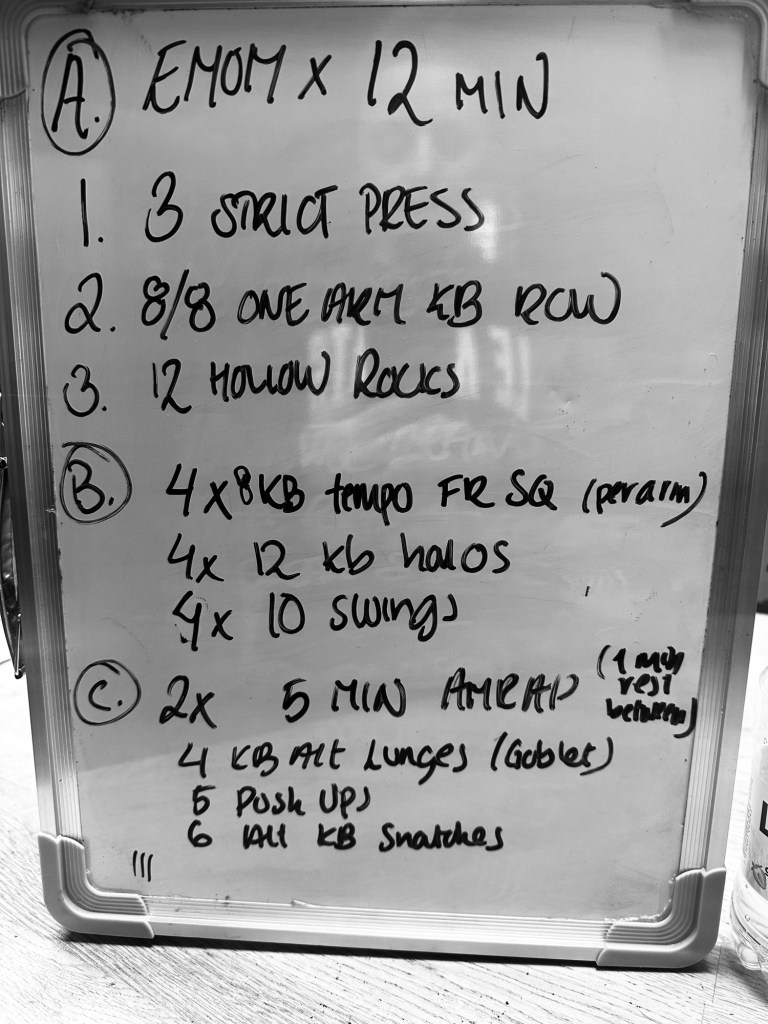 A. EMOM x 12 MIN
1. 3 STRICT PRESS
2. 8/8 ONE ARM KB ROW
3. 12 HOLLOW ROCKS
B. 4x8 KB tempo FR SQ (per arm)
4x 12 kb halos
4x 10 swings
C. 2x 5 MIN AMRAP (1 min rest between)
4 KB Alt Lunges (Goblet)
5 Push Ups
6 Alt KB Snatches
III